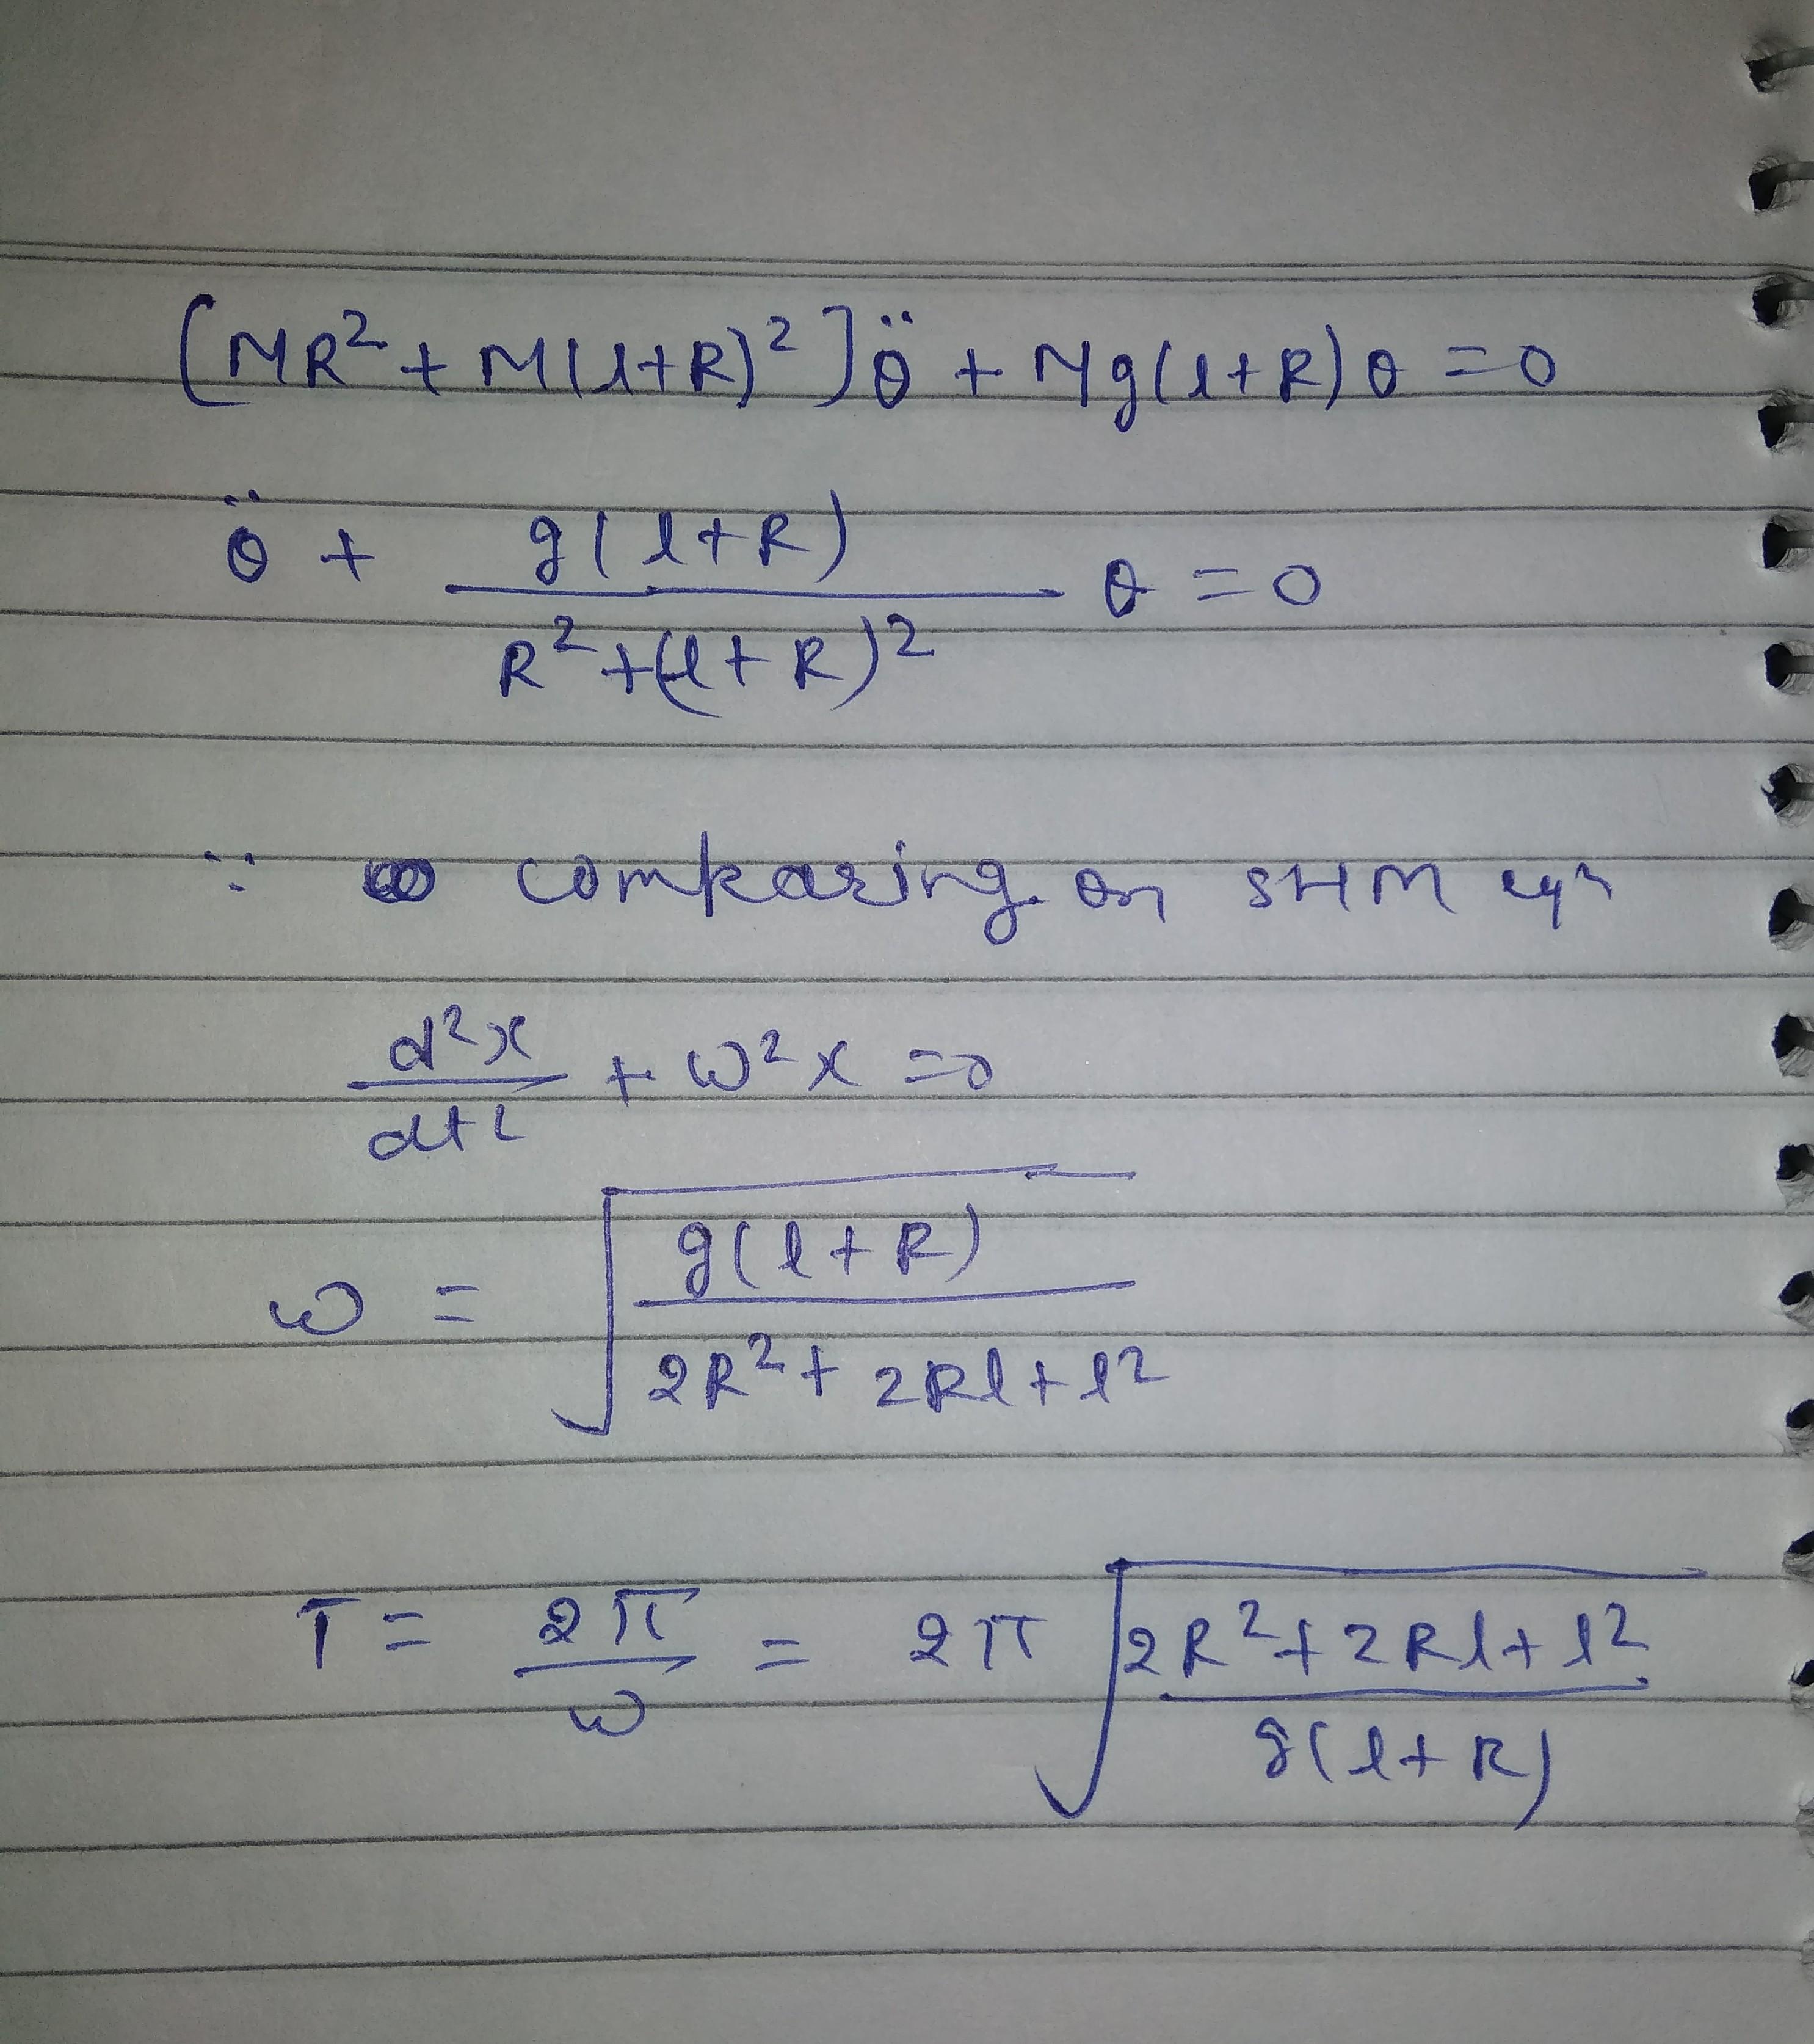 [MR² + M(l+R)²]θ̈ + Mg(l+R)θ = 0
θ̈ + g(l+R) / R²+(l+R)² θ = 0
∵ comparing on SHM eqn
d²x/dt² + ω²x = 0
ω = √(g(l+R) / 2R²+2Rl+l²)
T = 2π/ω = 2π √(2R²+2Rl+l² / g(l+R))